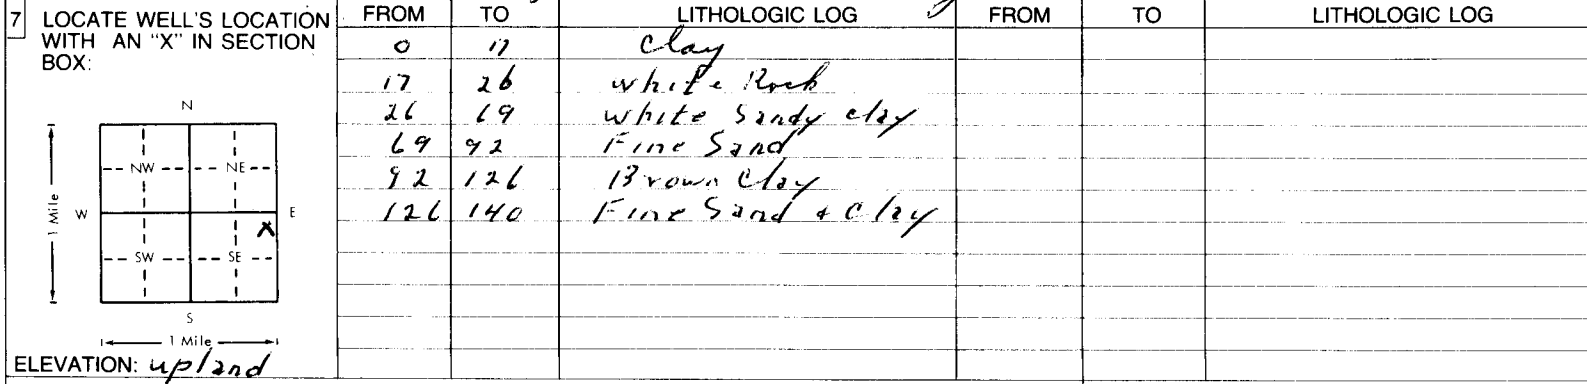 7 LOCATE WELL'S LOCATION WITH AN "X" IN SECTION BOX:
N
NW NE
W E
X
SW SE
S
1 Mile
1 Mile
ELEVATION: upland
FROM TO LITHOLOGIC LOG FROM TO LITHOLOGIC LOG
0 17 Clay
17 26 white Rock
26 69 white Sandy clay
69 92 Fine Sand
92 126 Brown Clay
126 140 Fine Sand & Clay